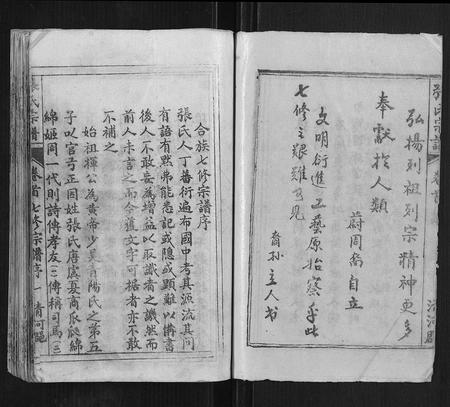 張氏宗譜
清河郡
弘揚列祖列宗精神更多
奉獻於人類
蔚周喬自立
文明衍進工藝原始察乎此
七修之艱難可見
裔孫主人书
合族七修宗譜序
張氏人丁蕃衍遍布國中考其源流其间
有語有默弗能悉記或隐或顕难以備書
後人不敢妄爲增益以取譏者之譏然而
前人未言之而今獲文字可據者亦不敢
不補之
始祖揮公為黃帝少昊青陽氏之第五
子以官弓正因姓張氏唐虞夏商瓜瓞綿
綿姬周一代則詩傳孝友(二)傳稱司馬(三)
張氏宗譜
卷首七修宗譜序
一
清河郡